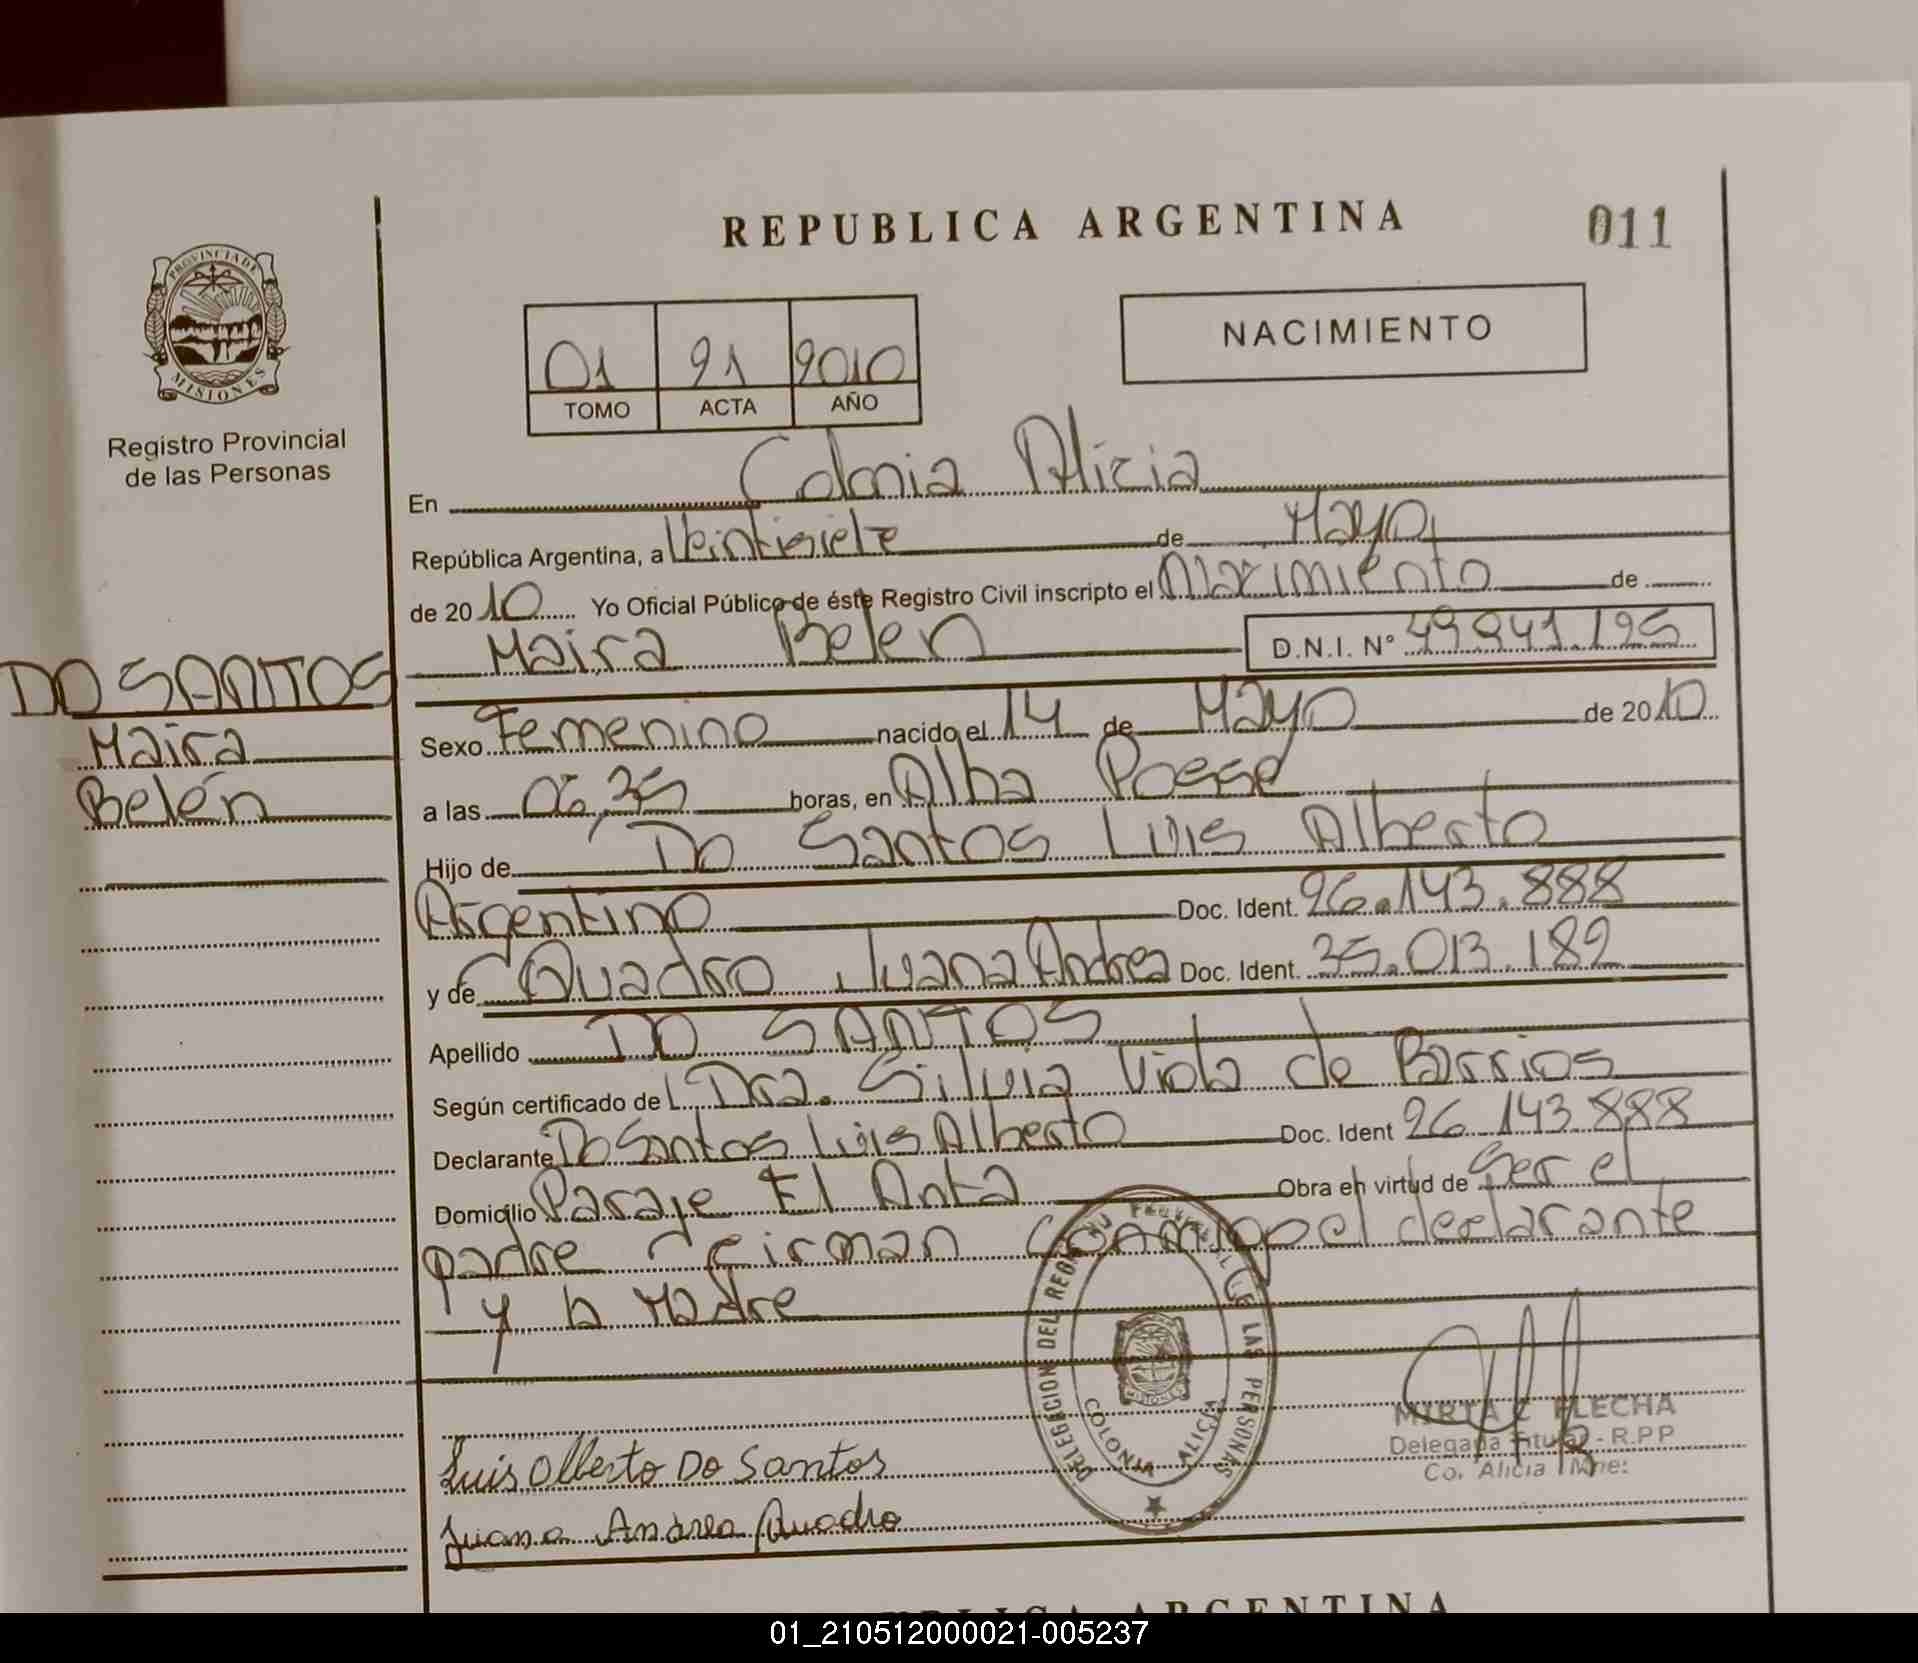 REPUBLICA ARGENTINA
011
PROVINCIA DE
MISIONES
Registro Provincial
de las Personas
01 21 2010
TOMO ACTA AÑO
NACIMIENTO
En Colonia Alicia
República Argentina, a Veintisiete de Mayo
de 2010 Yo Oficial Público de éste Registro Civil inscripto el Nacimiento de
Maira Belen D.N.I. Nº 49.941.195
DO SANTOS
Maira
Belén
Sexo Femenino nacido el 14 de Mayo de 2010
a las 06,35 horas, en Alba Posse
Hijo de Do Santos Luis Alberto
Argentino Doc. Ident. 26.143.888
y de Quadro Juana Andrea Doc. Ident. 35.013.182
Apellido DO SANTOS
Según certificado de L Dra. Silvia Viola de Barrios
Declarante Do Santos Luis Alberto Doc. Ident 26.143.888
Domicilio Paraje El Anta Obra en virtud de Ser el
padre Firman el declarante
y la Madre
DELEGACION DEL REGISTRO PROVINCIAL DE LAS PERSONAS
COLONIA ALICIA
MISIONES
MIRTA C FLECHA
Delegada Titular - R.P.P
Co. Alicia Mnes
Luis Alberto Do Santos
Juana Andrea Quadro
REPUBLICA ARGENTINA
01_210512000021-005237